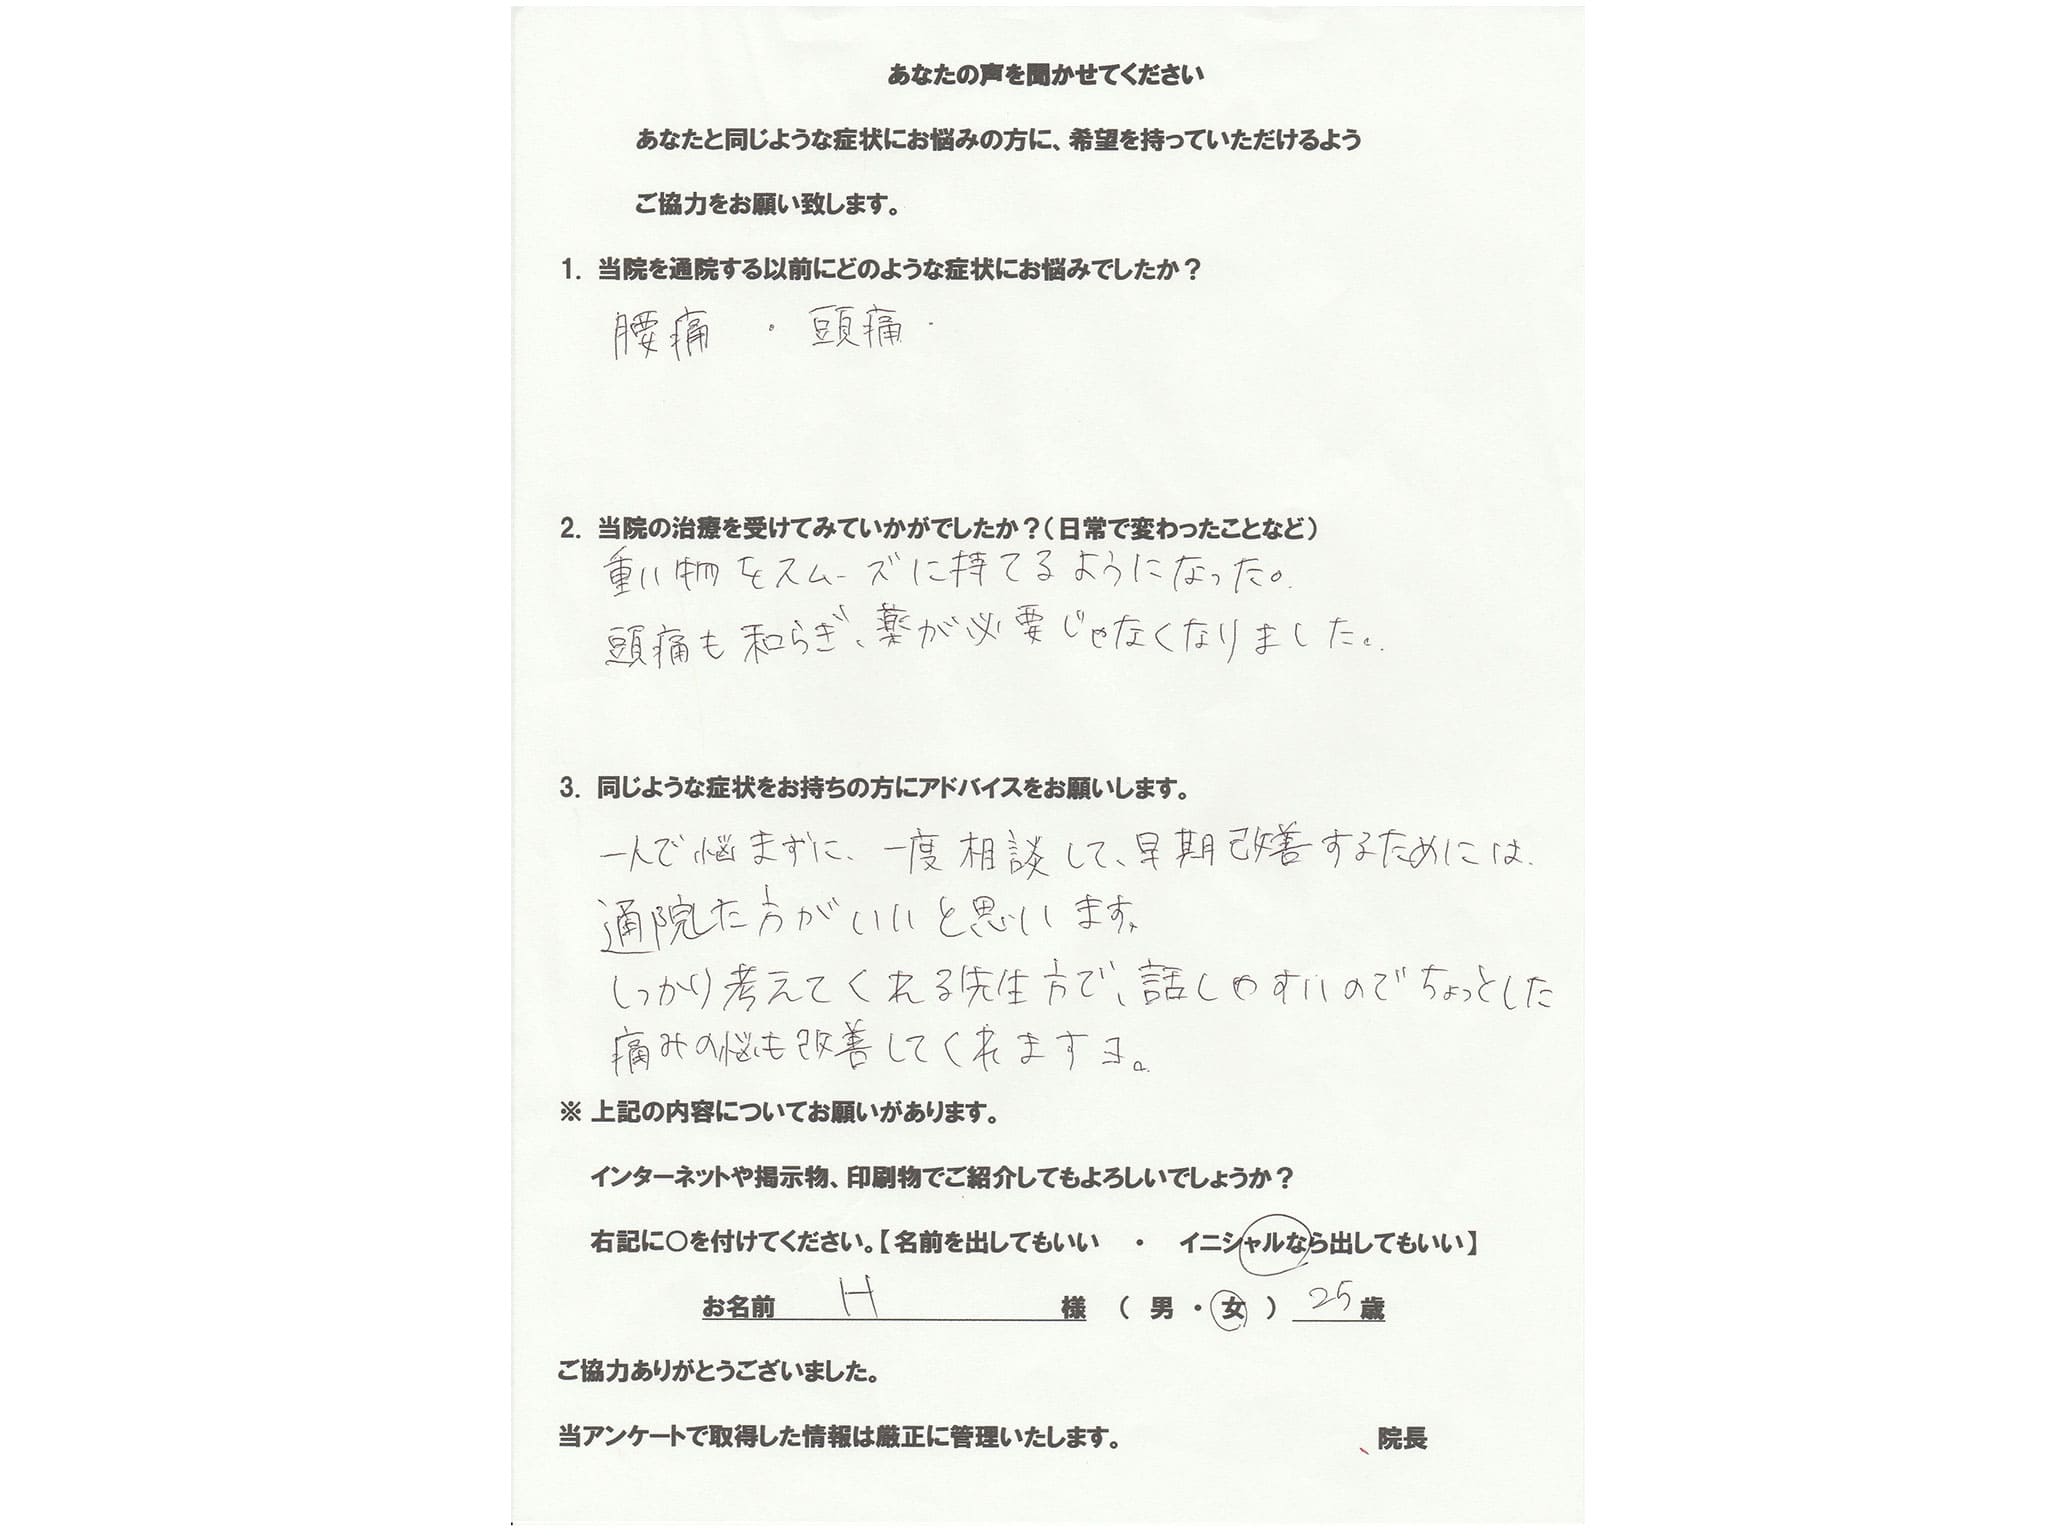 あなたの声を聞かせてください
あなたと同じような症状にお悩みの方に、希望を持っていただけるよう
ご協力をお願い致します。
1. 当院を通院する以前にどのような症状にお悩みでしたか？
腰痛 ・ 頭痛・
2. 当院の治療を受けてみていかがでしたか？（日常で変わったことなど）
重い物をスムーズに持てるようになった。
頭痛も和らぎ、薬が必要じゃなくなりました。
3. 同じような症状をお持ちの方にアドバイスをお願いします。
一人で悩まずに、一度相談して、早期改善するためには、
通院した方がいいと思います。
しっかり考えてくれる先生方で、話しやすいのでちょっとした
痛みの悩も改善してくれますヨ。
※ 上記の内容についてお願いがあります。
インターネットや掲示物、印刷物でご紹介してもよろしいでしょうか？
右記に○を付けてください。【名前を出してもいい ・ イニシャルなら出してもいい】
お名前 H 様 （ 男 ・ 女 ） 25 歳
ご協力ありがとうございました。
当アンケートで取得した情報は厳正に管理いたします。 院長